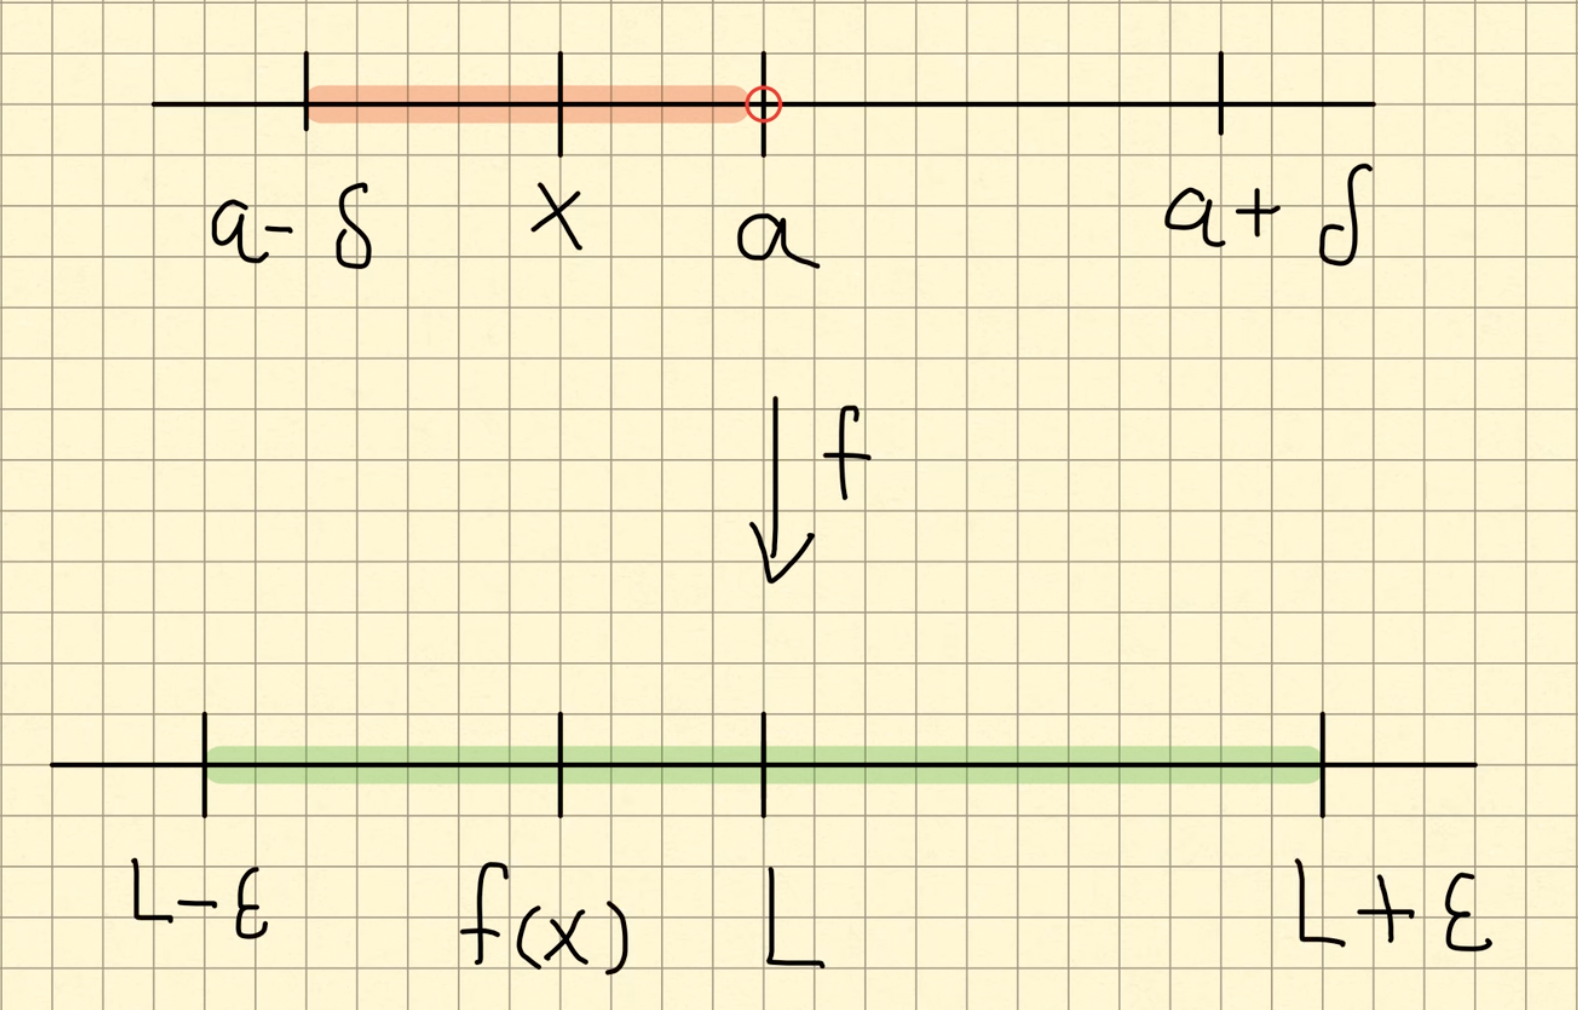 a-δ x a a+δ
f
L-ε f(x) L L+ε